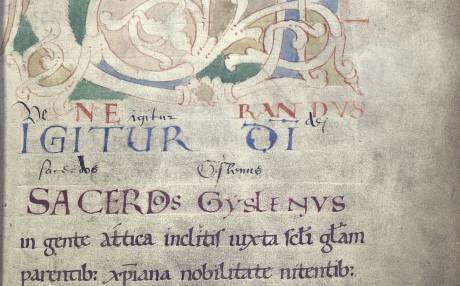 Ve NE igitur RANDVS
IGITUR DI dei
sacerdos Gislenus
SACERDOS GYSLENVS
in gente attica inclitis iuxta scli glam
parentib: xpiana nobilitate nitentib: